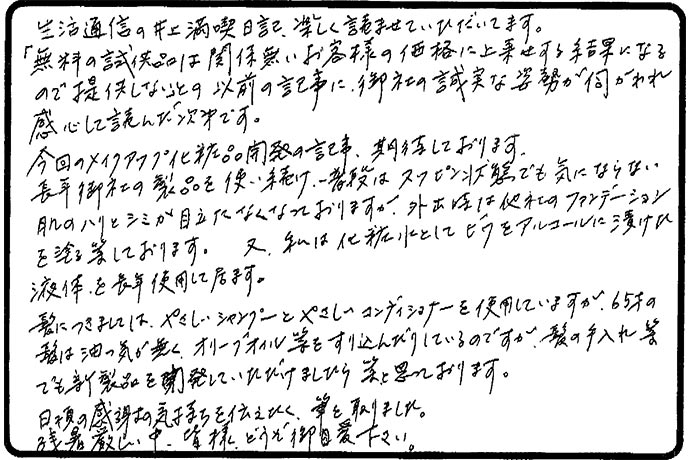 生活通信の井上満喫日記、楽しく読ませていただいてます。
「無料の試供品は関係無いお客様の価格に上乗せする結果になる
ので提供しない」との以前の記事に、御社の誠実な姿勢が伺がわれ
感心して読んだ次第です。
今回のメイクアップ化粧品開発の記事、期待しております。
長年御社の製品を使い続け、普段はスッピン状態でも気にならない
肌のハリとシミが目立たなくなっておりますが、外出時は他社のファンデーション
を塗る等しております。 又、私は化粧水としてビワをアルコールに漬けた
液体を長年使用して居ます。
髪につきましては、やさしいシャンプーとやさしいコンディショナーを使用していますが、65才の
髪は油っ気が無く、オリーブオイル等をすり込んだりしているのですが、髪の手入れ等
でも新製品を開発していただけましたら等と思っております。
日頃の感謝の気持ちを伝えたく、筆を取りました。
残暑厳しい中、皆様、どうぞ御自愛下さい。